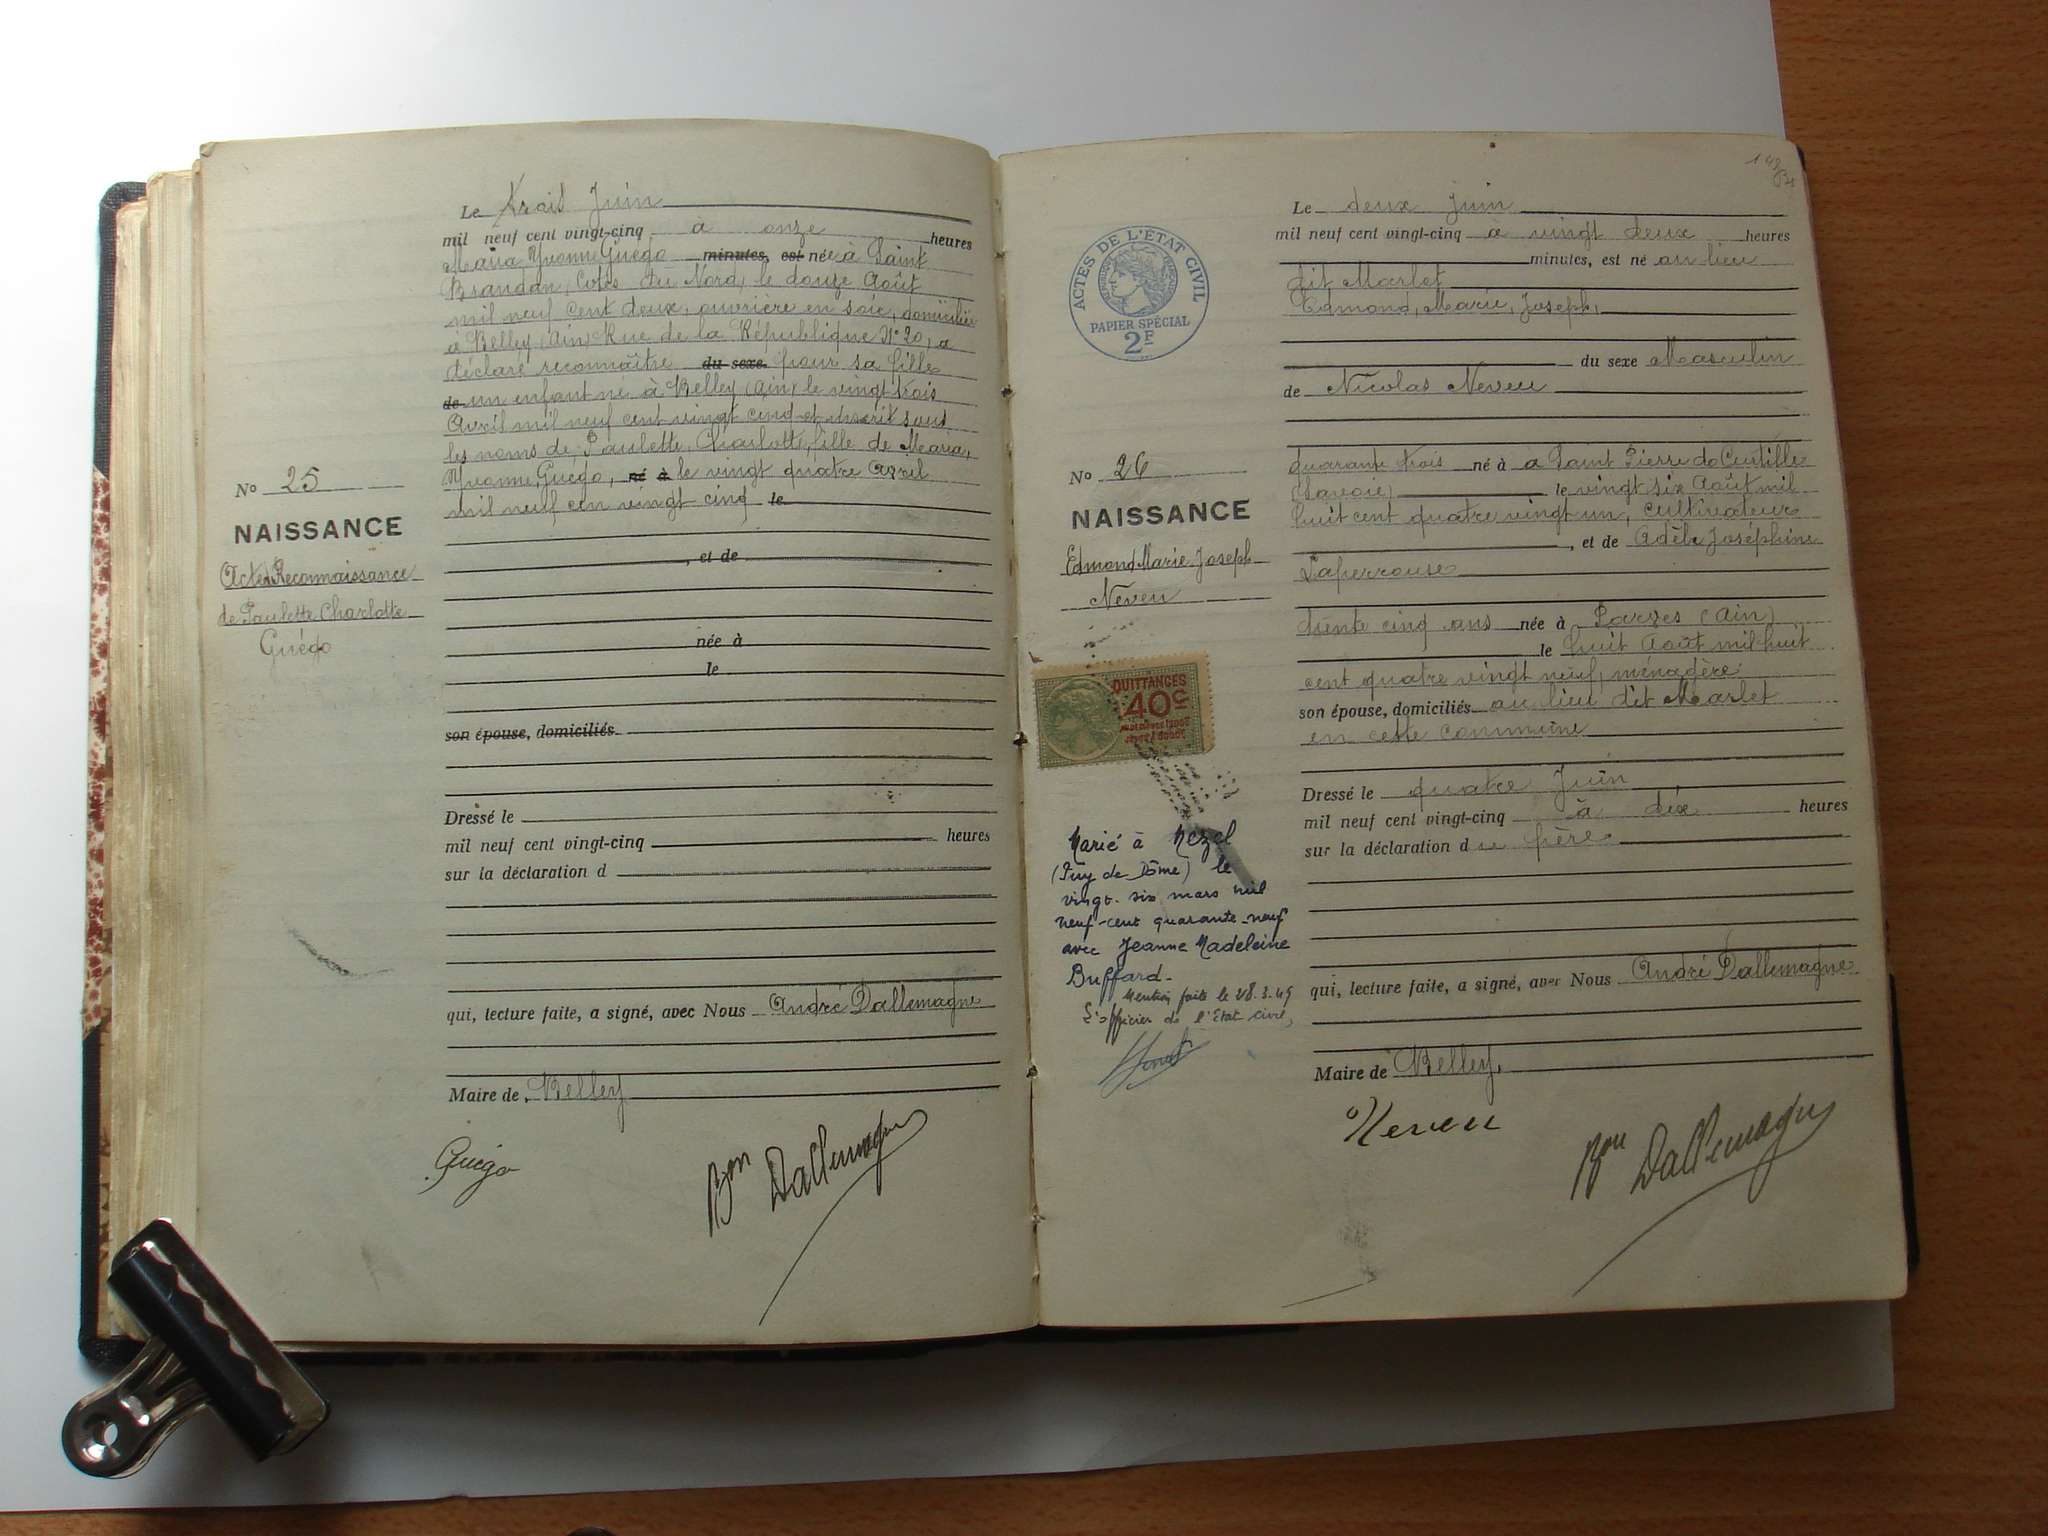 Le Trois Juin
mil neuf cent vingt-cinq à onze heures
Maria Yvonne Guégo minutes, est née à Saint
Brandan, Cotes du Nord, le douze Août
mil neuf cent deux, ouvrière en soie, domiciliée
à Belley (Ain) Rue de la République N° 20, a
déclaré reconnaître du sexe pour sa fille
de un enfant né à Belley (Ain) le vingt trois
Avril mil neuf cent vingt cinq et inscrit sous
les noms de Paulette, Charlotte, fille de Maria,
Yvonne, Guégo, né à le vingt quatre Avril
mil neuf cen vingt cinq le
, et de
née à
le
son épouse, domiciliés
Dressé le
mil neuf cent vingt-cinq heures
sur la déclaration d
qui, lecture faite, a signé, avec Nous André Dallemagne
Maire de Belley
Guégo
Bon Dallemagne
No 25
NAISSANCE
Acte Reconnaissance
de Paulette Charlotte
Guégo
Le deux juin
mil neuf cent vingt-cinq à vingt deux heures
minutes, est né au lieu
dit Marlet
Edmond, Marie, Joseph,
du sexe Masculin
de Nicolas Neveu
quarante trois né à a Saint Pierre de Curtille
(Savoie) le vingt six Août mil
huit cent quatre vingt un, cultivateur
, et de Adèle Joséphine
Laperrouse
trente cinq ans née à Parves (Ain)
le huit Août mil huit
cent quatre vingt neuf, ménagère
son épouse, domiciliés au lieu dit Marlet
en cette commune
Dressé le quatre Juin
mil neuf cent vingt-cinq à dix heures
sur la déclaration du père
qui, lecture faite, a signé, avec Nous André Dallemagne
Maire de Belley,
Neveu
Bon Dallemagne
ACTES DE L'ÉTAT CIVIL
RÉPUBLIQUE FRANÇAISE
PAPIER SPÉCIAL
2F
No 26
NAISSANCE
Edmond Marie Joseph
Neveu
QUITTANCES
40c
Marié à Mezel
(Puy de Dôme) le
vingt-six mars mil
neuf-cent quarante-neuf
avec Jeanne Madeleine
Buffard.
Mention faite le 28.3.49
L'officier de l'Etat civil,